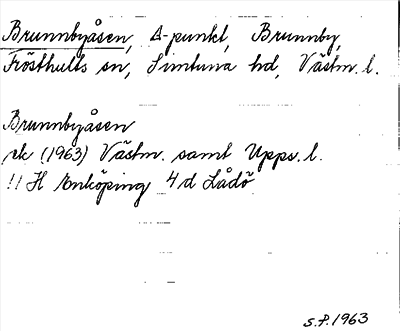 Brunnbyåsen, Δ-punkt, Brunnby,
Frösthults sn, Simtuna hd, Västm. l.
Brunnbyåsen
rk (1963) Västm. samt Upps. l.
11 H Enköping 4 d Lådö
S.P. 1963